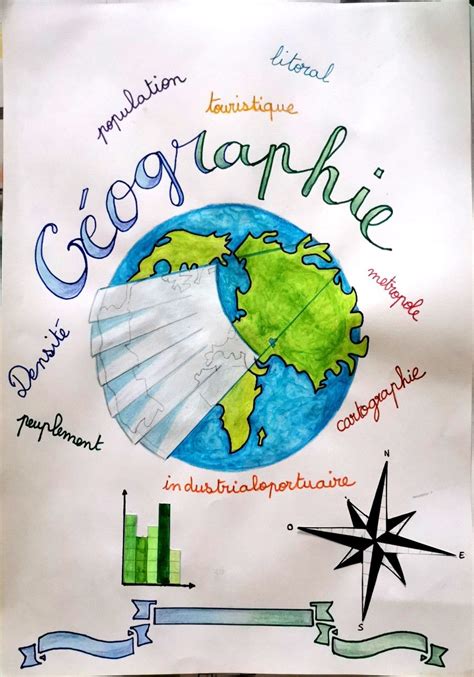 litoral
population
touristique
Géographie
metropole
Densité
cartographie
peuplement
industrialoportuaire
N
O
E
S